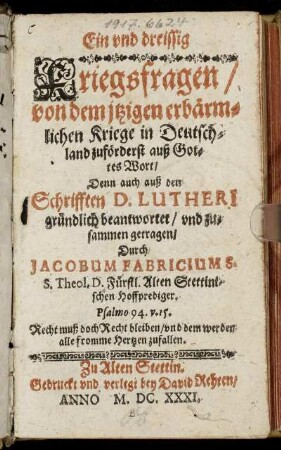 1917. 6624
Ein vnd dreissig
Kriegsfragen/
von dem jtzigen erbärm-
lichen Kriege in Deutsch-
land zuförderst auß Got-
tes Wort/
Denn auch auß den
Schrifften D. LUTHERI
gründlich beantwortet/ vnd zu-
sammen getragen/
Durch
JACOBUM FABRICIUM S-
S. Theol. D. Fürstl. Alten Stettini-
schen Hoffprediger.
Psalmo 94. v. 15.
Recht muß doch Recht bleiben/ vnd dem werden
alle fromme Hertzen zufallen.
Zu Alten Stettin.
Gedruckt vnd verlegt bey David Rehten/
ANNO M. DC. XXXI.